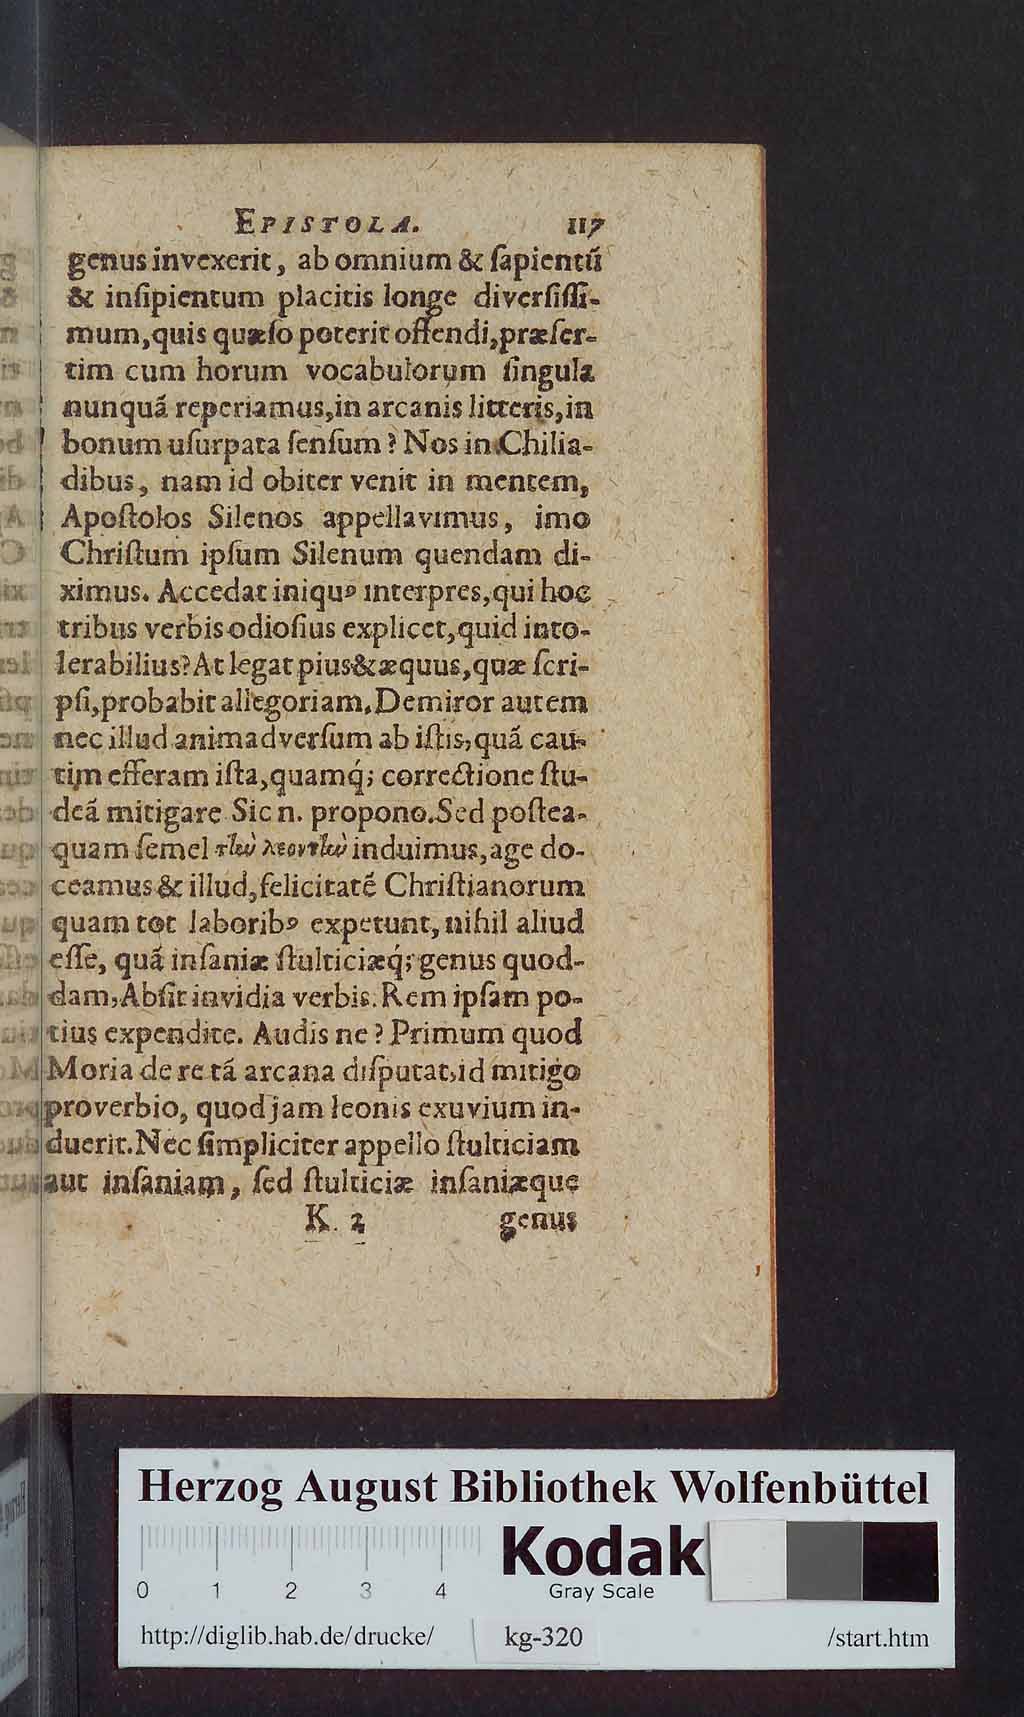 EPISTOLA. 117
genus invexerit, ab omnium & ſapientũ
& inſipientum placitis longe diverſiſſi-
mum, quis quæſo poterit offendi, præſer-
tim cum horum vocabulorum ſingula
nunquã reperiamus, in arcanis litteris, in
bonum uſurpata ſenſum? Nos in Chilia-
dibus, nam id obiter venit in mentem,
Apoſtolos Silenos appellavimus, imo
Chriſtum ipſum Silenum quendam di-
ximus. Accedat iniquꝰ interpres, qui hoc
tribus verbis odioſius explicet, quid into-
lerabilius? At legat pius & æquus, quæ ſcri-
pſi, probabit allegoriam. Demiror autem
nec illud animadverſum ab iſtis, quã cau-
tim efferam iſta, quamq́; correctione ſtu-
deã mitigare Sic n. propono. Sed poſtea-
quam ſemel τlὼ λεοντlὼ induimus, age do-
ceamus & illud, felicitatẽ Chriſtianorum
quam tot laboribꝰ expetunt, nihil aliud
eſſe, quã inſaniæ ſtulticiæq́; genus quod-
dam, Abſit invidia verbis. Rem ipſam po-
tius expendite. Audis ne? Primum quod
Moria de re tã arcana diſputat, id mitigo
proverbio, quod jam leonis exuvium in-
duerit. Nec ſimpliciter appello ſtulticiam
aut inſaniam, ſed ſtulticiæ inſaniæque
K. 2 genus
Herzog August Bibliothek Wolfenbüttel
0 1 2 3 4
Kodak
Gray Scale
http://diglib.hab.de/drucke/ kg-320 /start.htm